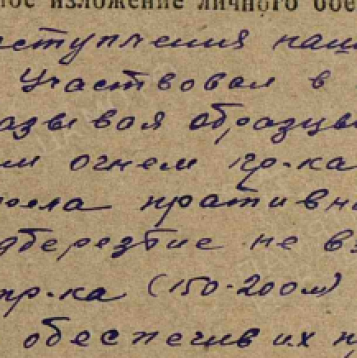 ное изложение личного бое
аступления наш
Участвовал в
азывая образцы
им огнем пр-ка
противн
дберезтие не в
пр-ка (150-200м)
обеспечив их н